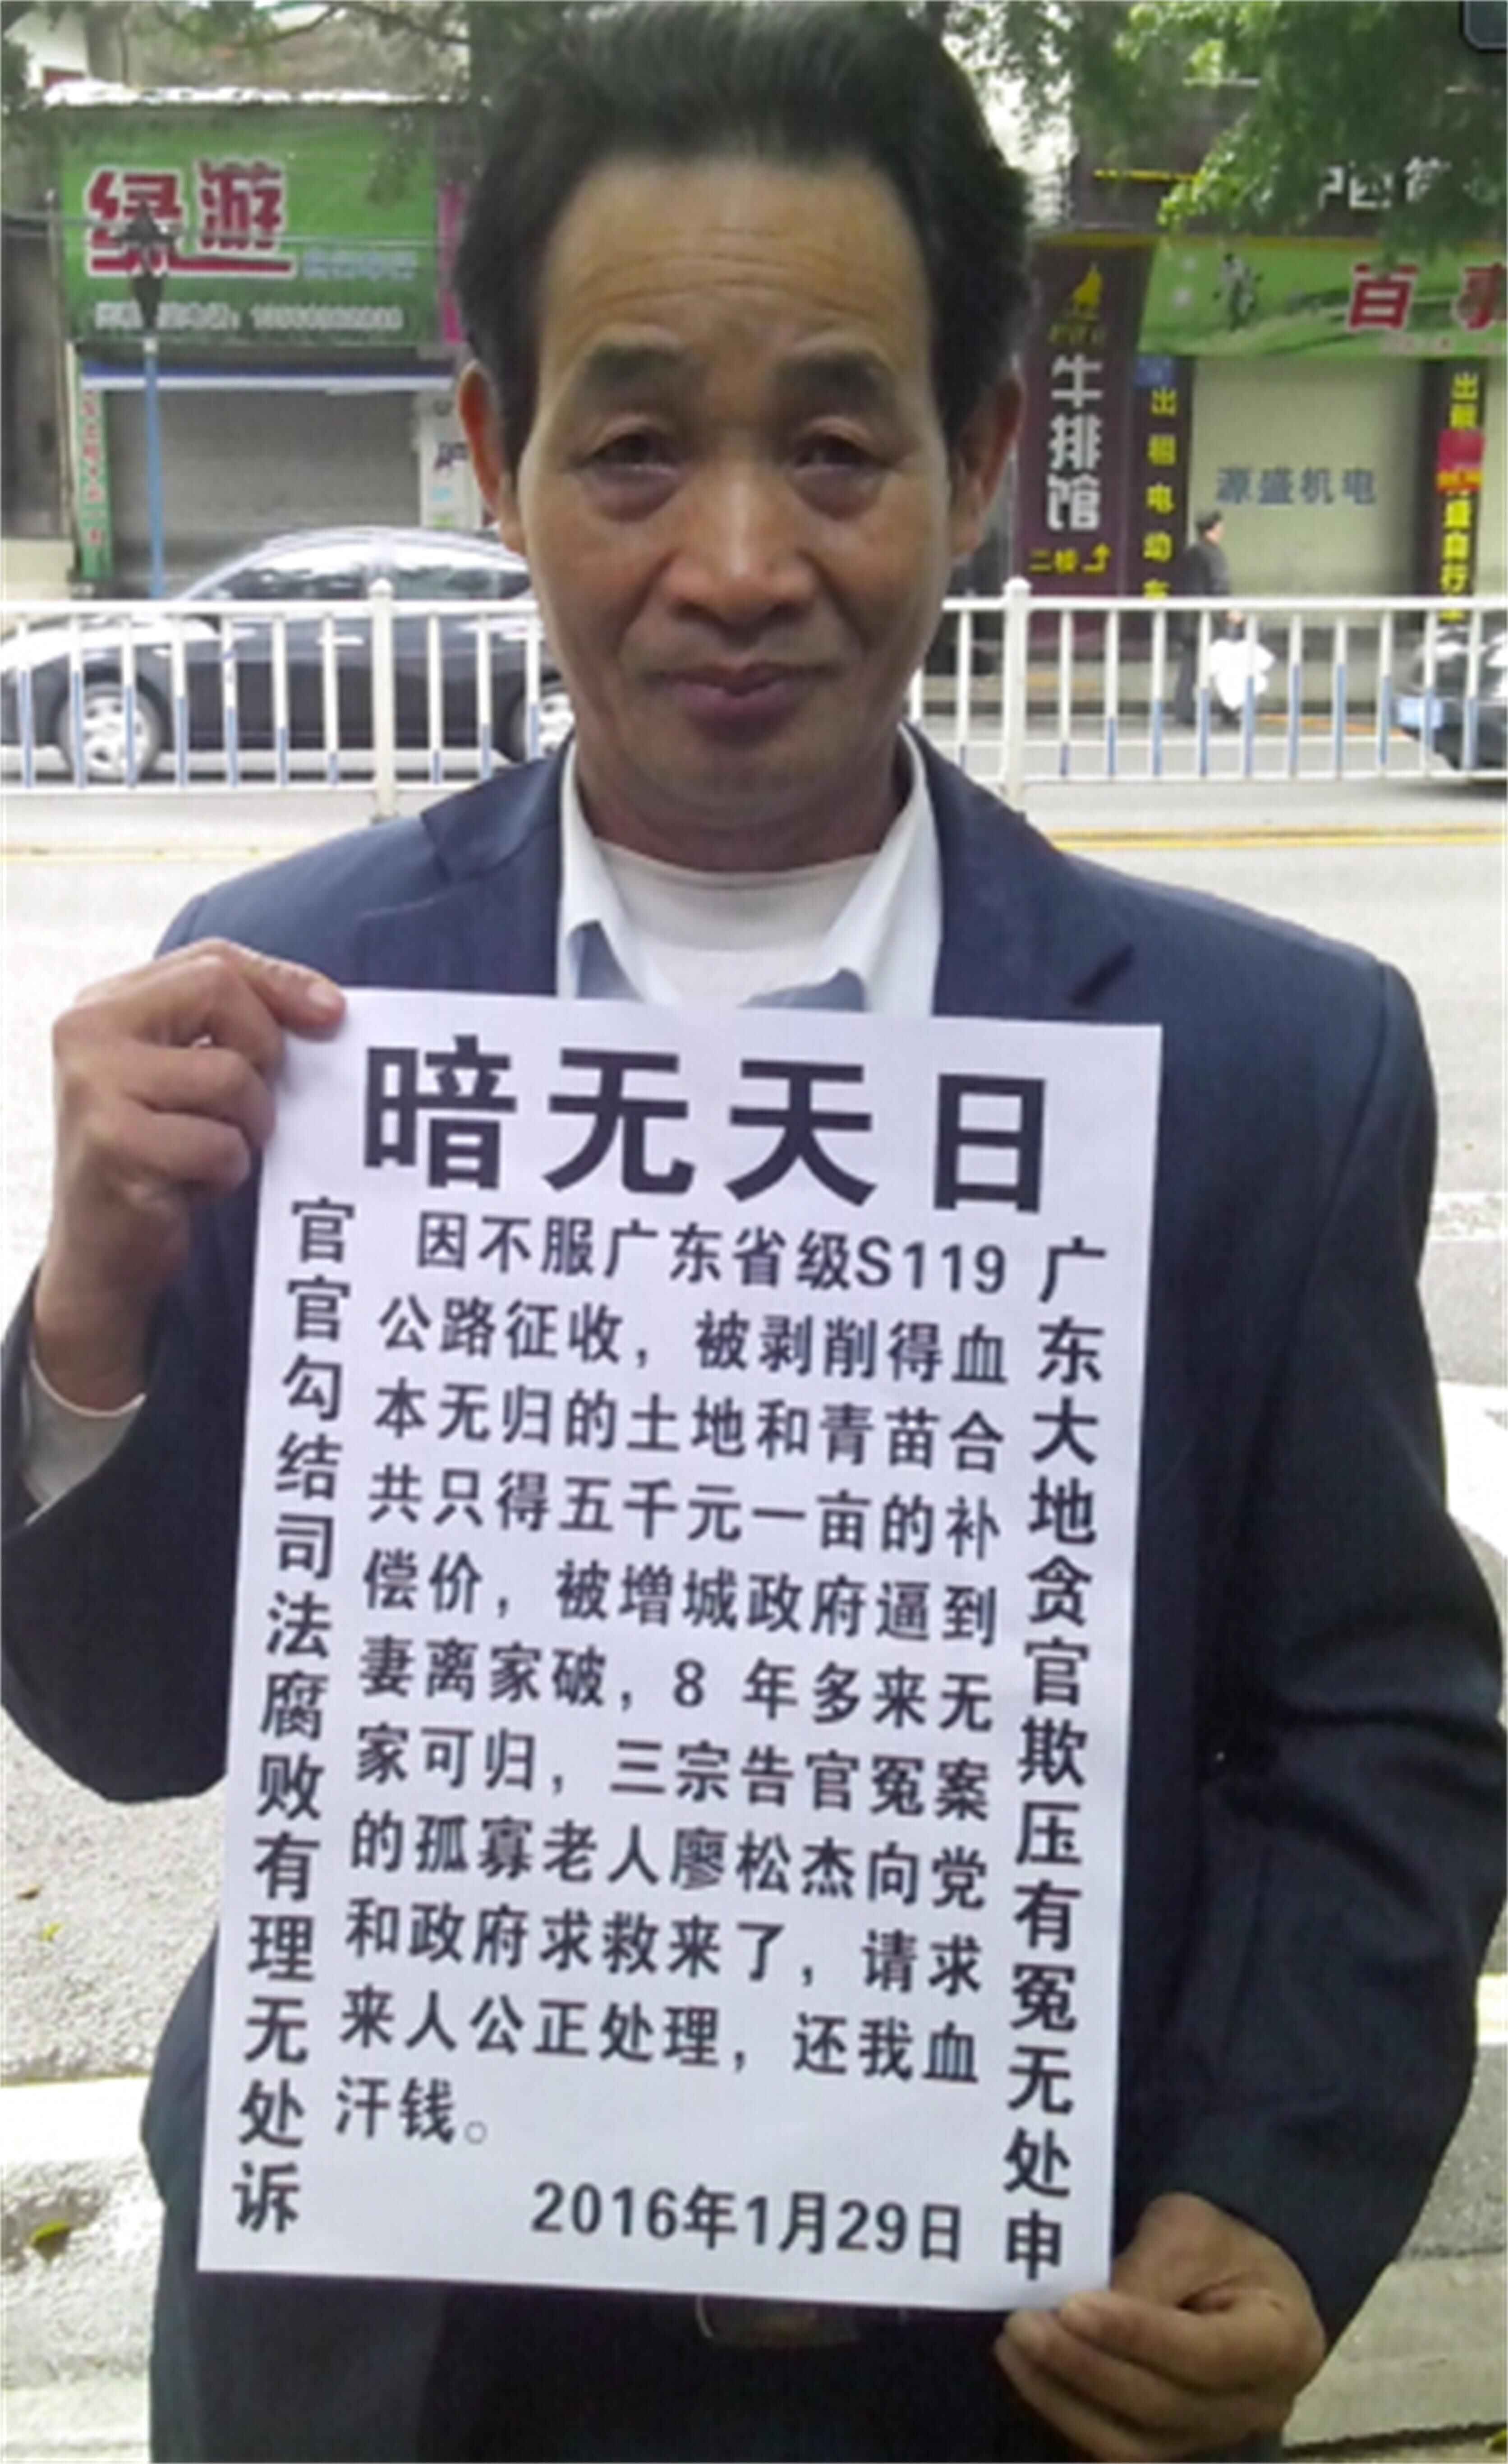 绿游
百事
牛排馆
二楼
出租电动车
源盛机电
出租
暗无天日
广东大地贪官欺压有冤无处申
因不服广东省级S119
公路征收，被剥削得血
本无归的土地和青苗合
共只得五千元一亩的补
偿价，被增城政府逼到
妻离家破，8 年多来无
家可归，三宗告官冤案
的孤寡老人廖松杰向党
和政府求救来了，请求
来人公正处理，还我血
汗钱。
2016年1月29日
官官勾结司法腐败有理无处诉